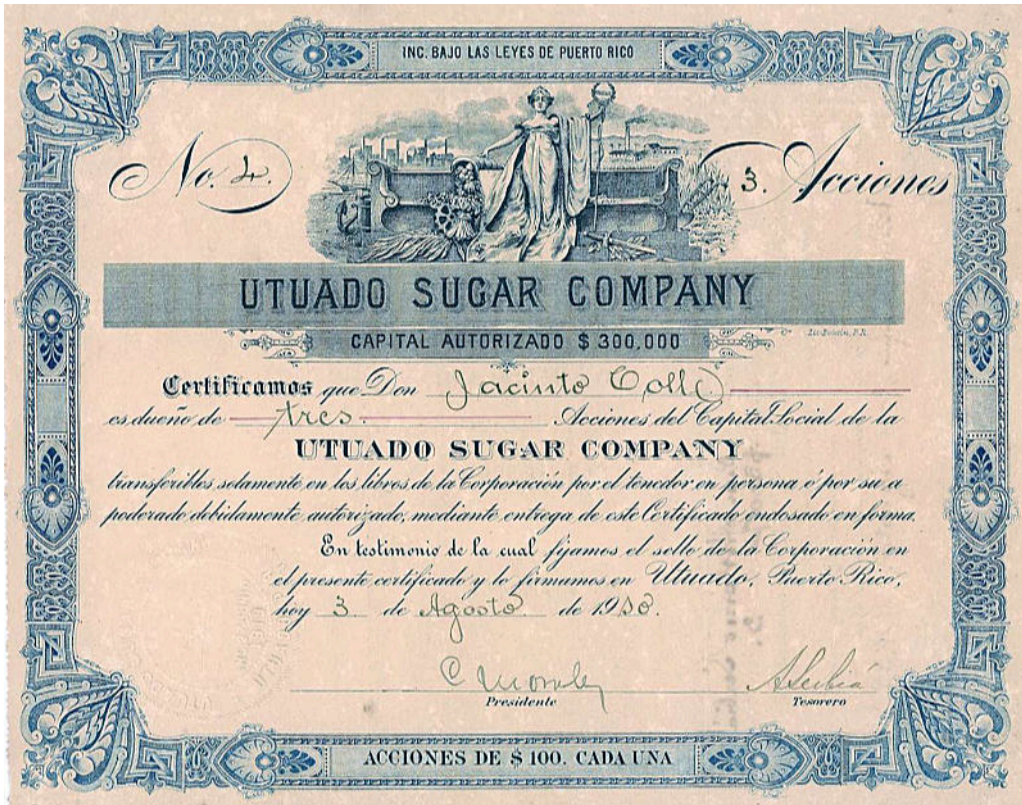 INC. BAJO LAS LEYES DE PUERTO RICO
No. 3 . Acciones
UTUADO SUGAR COMPANY
CAPITAL AUTORIZADO $ 300,000
Certificamos que Don Jacinto Coll
es dueño de tres Acciones del Capital Social de la
UTUADO SUGAR COMPANY
transferibles solamente en los libros de la Corporación por el tenedor en persona ó por su a
poderado debidamente autorizado, mediante entrega de este Certificado endosado en forma.
En testimonio de la cual fijamos el sello de la Corporación en
el presente certificado y lo firmamos en Utuado, Puerto Rico,
hoy 3 de Agosto de 19
Presidente Tesorero
ACCIONES DE $ 100. CADA UNA